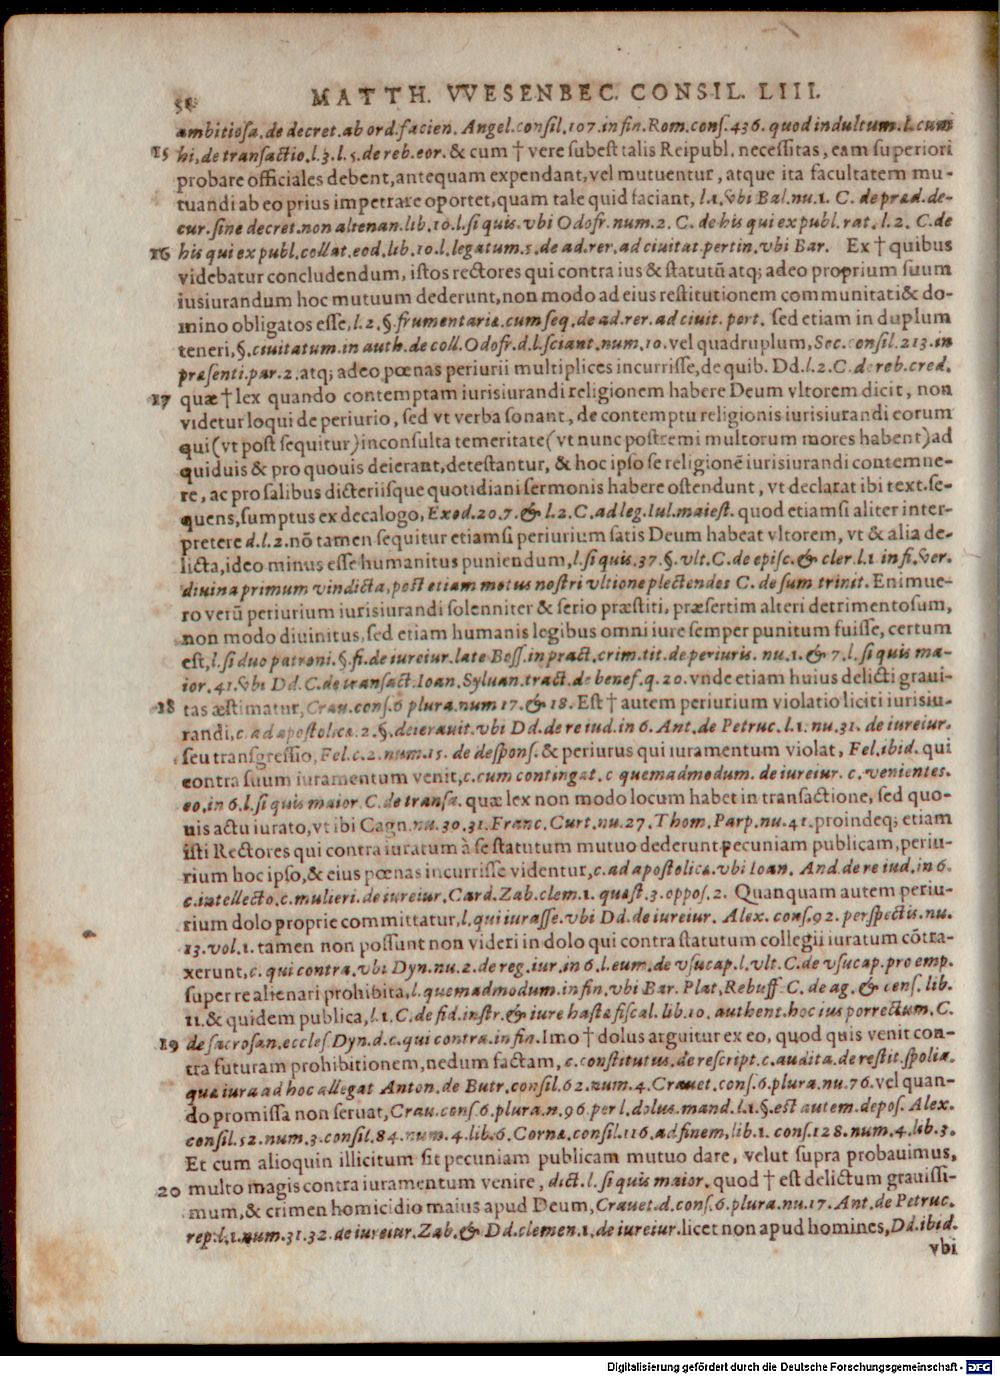 MATTH. VVESENBEC. CONSIL. LIII.
ambitiosa. de decret. ab ord. facien. Angel. consil. 107. in fin. Rom. cons. 436. quod indultum. l. cum
15 hi, de transactio. l. 3. l. 5. de reb. eor. & cum † vere subest talis Reipubl. necessitas, eam superiori
probare officiales debent, antequam expendant, vel mutuentur, atque ita facultatem mu-
tuandi ab eo prius impetrare oportet, quam tale quid faciant, l. 1. & vbi Bal. nu. 1. C. de præd. de-
cur. sine decret. non alienan. lib. 10. l. si quis. vbi Odofr. num. 2. C. de his qui ex publ. rat. l. 2. C. de
16 his qui ex publ. collat. eod. lib. 10. l. legatum. 5. de ad. rer. ad ciuitat. pertin. vbi Bar. Ex † quibus
videbatur concludendum, istos rectores qui contra ius & statutũ atq; adeo proprium suum
iusiurandum hoc mutuum dederunt, non modo ad eius restitutionem communitati & do-
mino obligatos esse, l. 2. §. frumentaria. cum seq. de ad. rer. ad ciuit. pert. sed etiam in duplum
teneri, §. ciuitatum. in auth. de coll. Odofr. d. l. sciant. num. 10. vel quadruplum, Soc. consil. 213. in
præsenti. par. 2. atq; adeo pœnas periurii multiplices incurrisse, de quib. Dd. l. 2. C. de reb. cred.
17 quæ † lex quando contemptam iurisiurandi religionem habere Deum vltorem dicit, non
videtur loqui de periurio, sed vt verba sonant, de contemptu religionis iurisiurandi eorum
qui (vt post sequitur) inconsulta temeritate (vt nunc postremi multorum mores habent) ad
quiduis & pro quouis deierant, detestantur, & hoc ipso se religionẽ iurisiurandi contemne-
re, ac pro salibus dicteriisque quotidiani sermonis habere ostendunt, vt declarat ibi text. se-
quens, sumptus ex decalogo, Exod. 20. 7. & l. 2. C. ad leg. Iul. maiest. quod etiamsi aliter inter-
pretere d. l. 2. nõ tamen sequitur etiamsi periurium satis Deum habeat vltorem, vt & alia de-
licta, ideo minus esse humanitus puniendum, l. si quis. 37. §. vlt. C. de episc. & cler. l. 1 in fi. & ver.
diuina primum vindicta, post etiam motus nostri vltione plectendes C. de sum trinit. Enimue-
ro verũ periurium iurisiurandi solenniter & serio præstiti, præsertim alteri detrimentosum,
non modo diuinitus, sed etiam humanis legibus omni iure semper punitum fuisse, certum
est, l. si duo patroni. §. fi. de iureiur. late Boss. in pract. crim. tit. de periuris. nu. 1. & 7. l. si quis ma-
ior. 41. & vbi Dd. C. de transact. Ioan. Syluan. tract. de benef. q. 20. vnde etiam huius delicti graui-
18 tas æstimatur, Crau. cons. 6 plura. num 17. & 18. Est † autem periurium violatio liciti iurisiu-
randi, c. ad apostolicæ. 2. §. deierauit. vbi Dd. de re iud. in 6. Ant. de Petruc. l. 1. nu. 31. de iureiur.
seu transgressio, Fel. c. 2. num. 15. de despons. & periurus qui iuramentum violat, Fel. ibid. qui
contra suum iuramentum venit, c. cum contingat. c quemadmodum. de iureiur. c. venientes.
eo. in 6. l. si quis maior. C. de transa. quæ lex non modo locum habet in transactione, sed quo-
uis actu iurato, vt ibi Cagn. nu. 30. 31. Franc. Curt. nu. 27. Thom. Parp. nu. 41. proindeq; etiam
isti Rectores qui contra iuratum à se statutum mutuo dederunt pecuniam publicam, periu-
rium hoc ipso, & eius pœnas incurrisse videntur, c. ad apostolicæ. vbi Ioan. And. de re iud. in 6.
c. intellecto. c. mulieri. de iureiur. Card. Zab. clem. 1. quæst. 3. oppos. 2. Quanquam autem periu-
rium dolo proprie committatur, l. qui iurasse. vbi Dd. de iureiur. Alex. cons. 92. perspectis. nu.
13. vol. 1. tamen non possunt non videri in dolo qui contra statutum collegii iuratum cõtra-
xerunt, c. qui contra. vbi Dyn. nu. 2. de reg. iur. in 6. l. eum. de vsucap. l. vlt. C. de vsucap. pro emp.
super re alienari prohibita, l. quemadmodum. in fin. vbi Bar. Plat, Rebuff. C. de ag. & cens. lib.
11. & quidem publica, l. 1. C. de fid. instr. & iure hastæ fiscal. lib. 10. authent. hoc ius porrectum. C.
19 de sacrosan. eccles Dyn. d. c. qui contra. in fin. Imo † dolus arguitur ex eo, quod quis venit con-
tra futuram prohibitionem, nedum factam, c. constitutus. de rescript. c. audita. de restit. spolia.
quæ iura ad hoc allegat Anton. de Butr. consil. 62. num. 4. Crauet. cons. 6. plura. nu. 76. vel quan-
do promissa non seruat, Crau. cons. 6. plura. n. 96. per l. dolus. mand. l. 1. §. est autem. depos. Alex.
consil. 52. num. 3. consil. 84. num. 4. lib. 6. Corne. consil. 116. ad finem, lib. 1. cons. 128. num. 4. lib. 3.
Et cum alioquin illicitum sit pecuniam publicam mutuo dare, velut supra probauimus,
20 multo magis contra iuramentum venire, dict. l. si quis maior. quod † est delictum grauissi-
mum, & crimen homicidio maius apud Deum, Crauet. d. cons. 6. plura. nu. 17. Ant. de Petruc.
rep. l. 1. num. 31. 32. de iureiur. Zab. & Dd. clemen. 1. de iureiur. licet non apud homines, Dd. ibid.
vbi
Digitalisierung gefördert durch die Deutsche Forschungsgemeinschaft - DFG